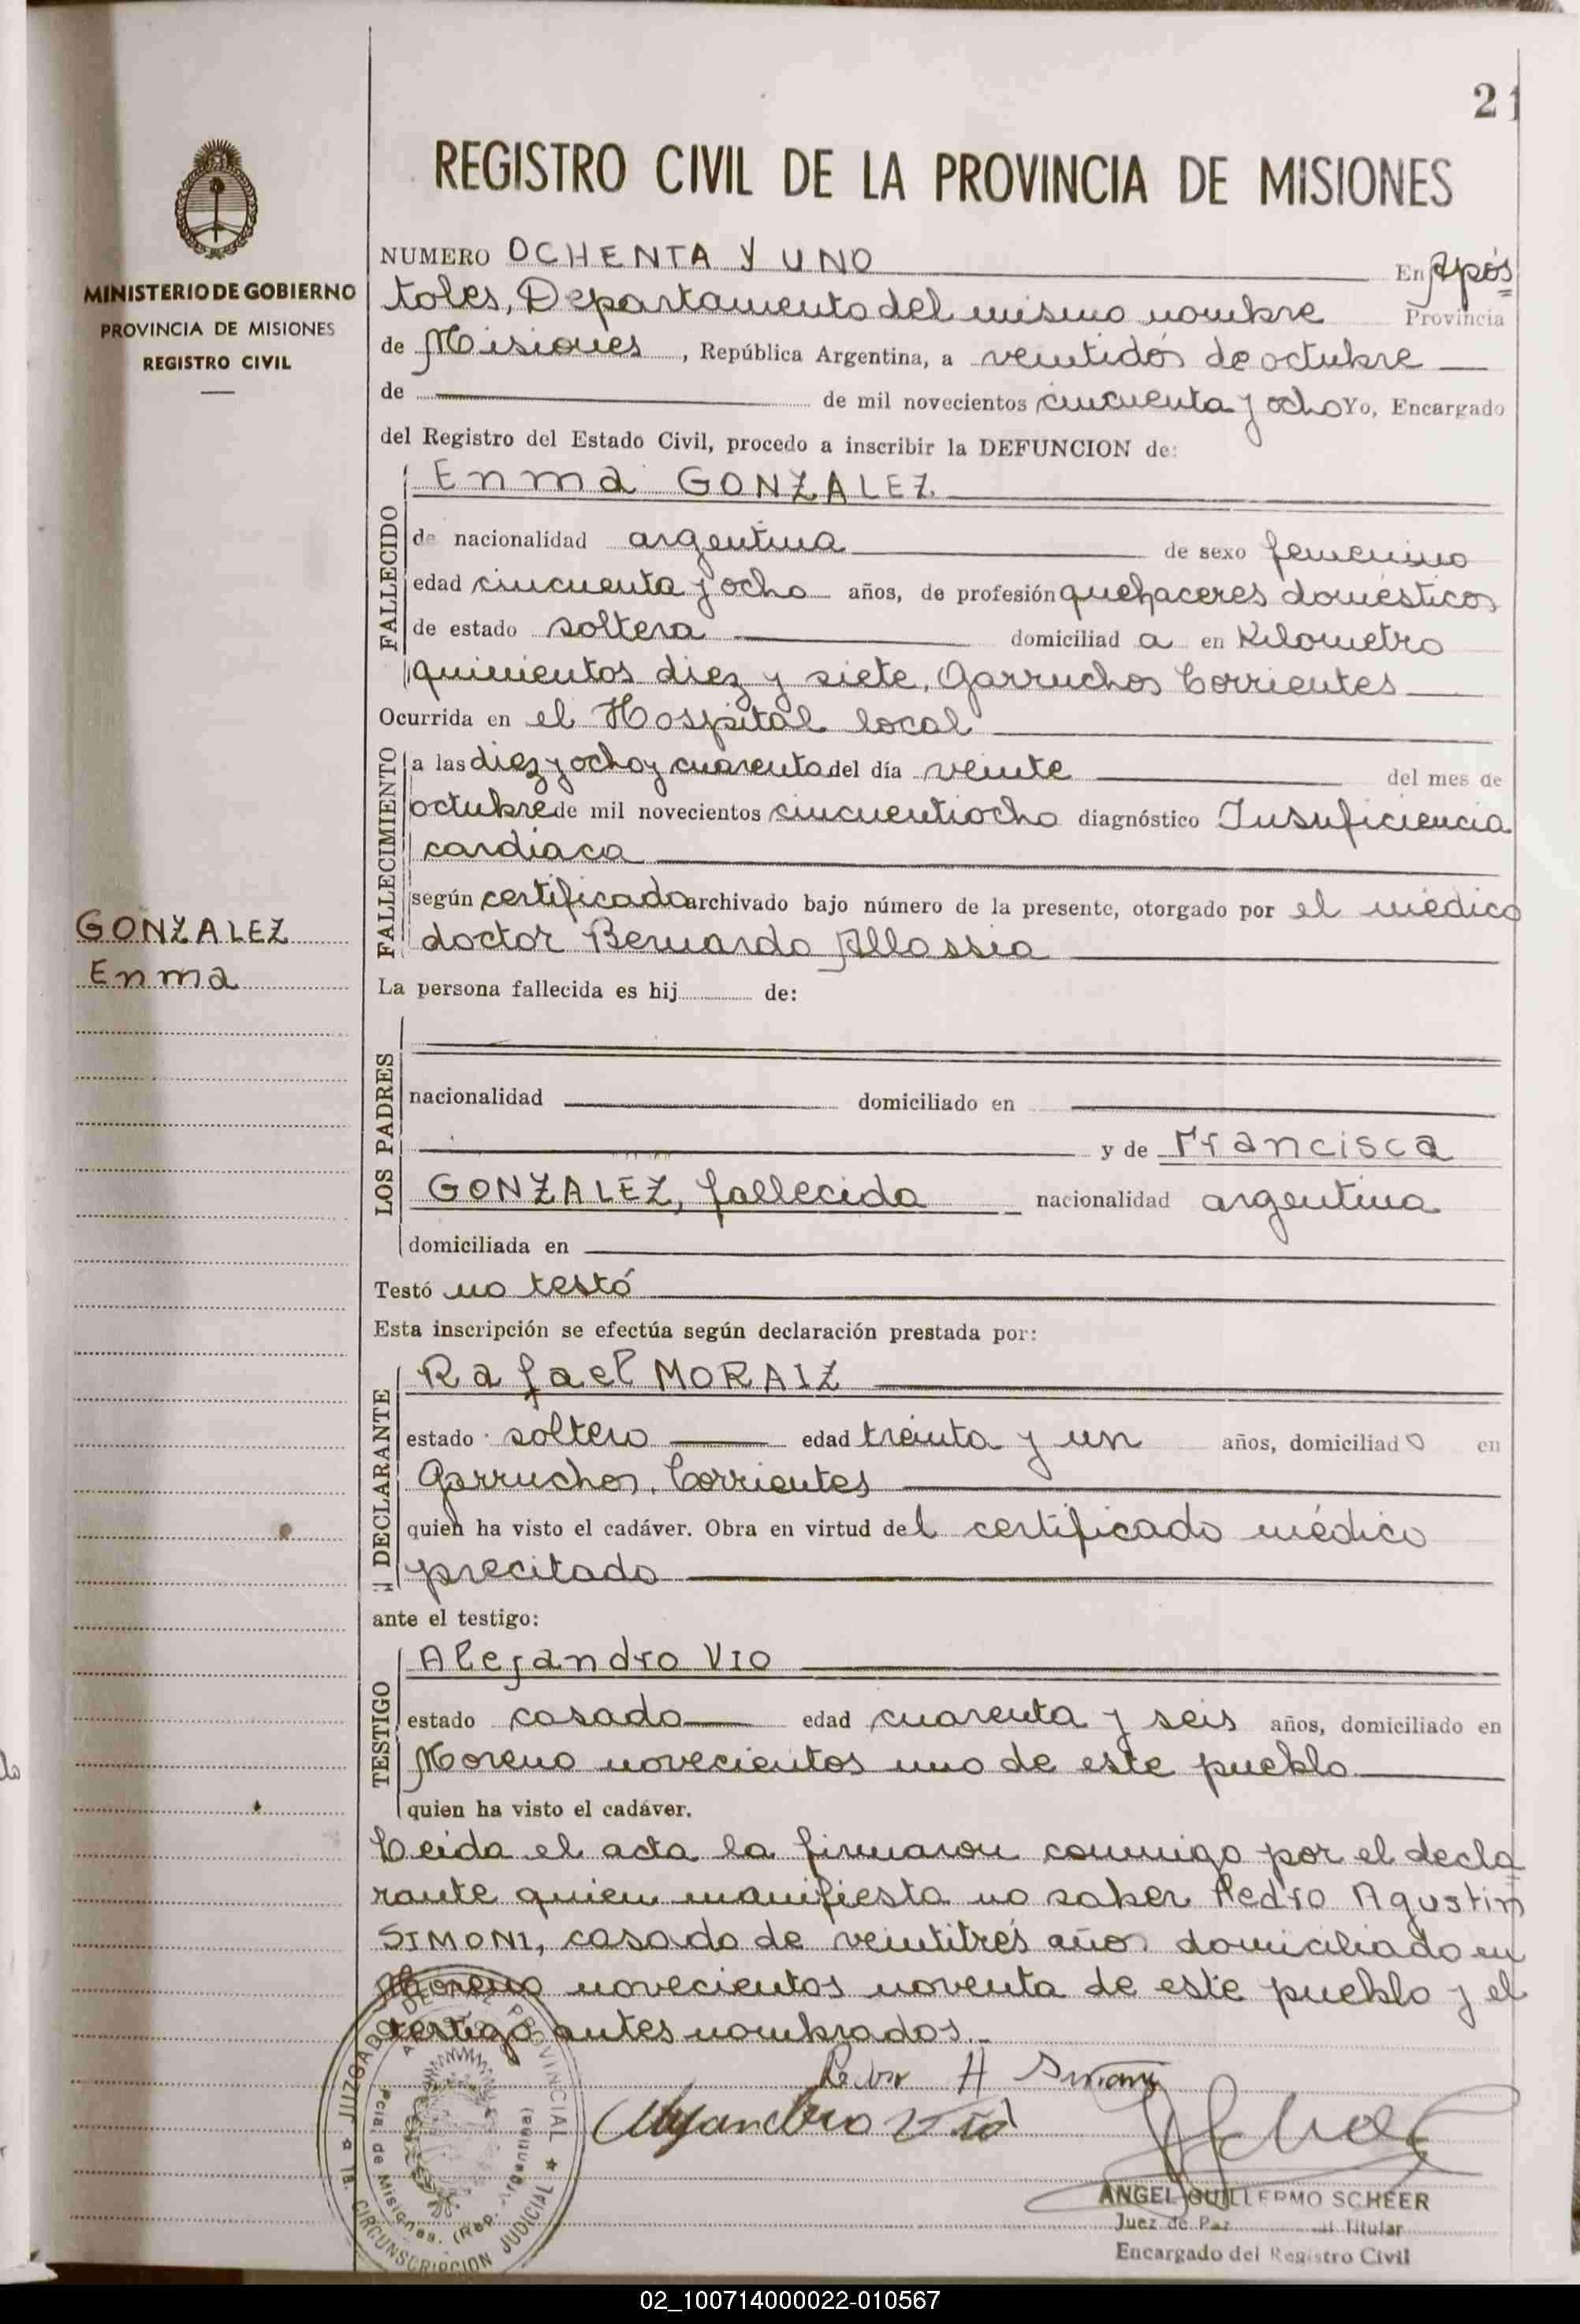 21
REGISTRO CIVIL DE LA PROVINCIA DE MISIONES
MINISTERIO DE GOBIERNO
PROVINCIA DE MISIONES
REGISTRO CIVIL
NUMERO OCHENTA Y UNO En Após
toles, Departamento del mismo nombre Provincia
de Misiones, República Argentina, a veintidós de octubre
de de mil novecientos cincuenta y ocho Yo, Encargado
del Registro del Estado Civil, procedo a inscribir la DEFUNCION de:
FALLECIDO
Enma GONZALEZ
de nacionalidad argentina de sexo femenino
edad cincuenta y ocho años, de profesión quehaceres domésticos
de estado soltera domiciliad a en Kilometro
quinientos diez y siete, Garruchos Corrientes
Ocurrida en el Hospital local
FALLECIMIENTO
a las diez y ocho y cuarenta del día veinte del mes de
octubre de mil novecientos cincuentiocho diagnóstico Insuficiencia
cardiaca
según certificado archivado bajo número de la presente, otorgado por el médico
doctor Bernardo Allossia
GONZALEZ
Enma
La persona fallecida es hij de:
LOS PADRES
nacionalidad domiciliado en
y de Francisca
GONZALEZ, fallecida nacionalidad argentina
domiciliada en
Testó no testó
Esta inscripción se efectúa según declaración prestada por:
DECLARANTE
Rafael MORAIZ
estado soltero edad treinta y un años, domiciliad o en
Garruchos, Corrientes
quien ha visto el cadáver. Obra en virtud del certificado médico
precitado
ante el testigo:
TESTIGO
Alejandro VIO
estado casado edad cuarenta y seis años, domiciliado en
Moreno novecientos uno de este pueblo
quien ha visto el cadáver.
Leída el acta la firmaron conmigo por el decla
rante quien manifiesta no saber Pedro Agustin
SIMONI, casado de veintitrés años domiciliado en
Moreno novecientos noventa de este pueblo y el
testigo antes nombrados.-
Pedro A Simoni
Alejandro Vio
ANGEL GUILLERMO SCHEER
Juez de Paz Titular
Encargado del Registro Civil
JUZGADO DE PAZ PROVINCIAL
1a. CIRCUNSCRIPCION JUDICIAL
Pcia. de Misiones. (Rep. Argentina)
02_100714000022-010567